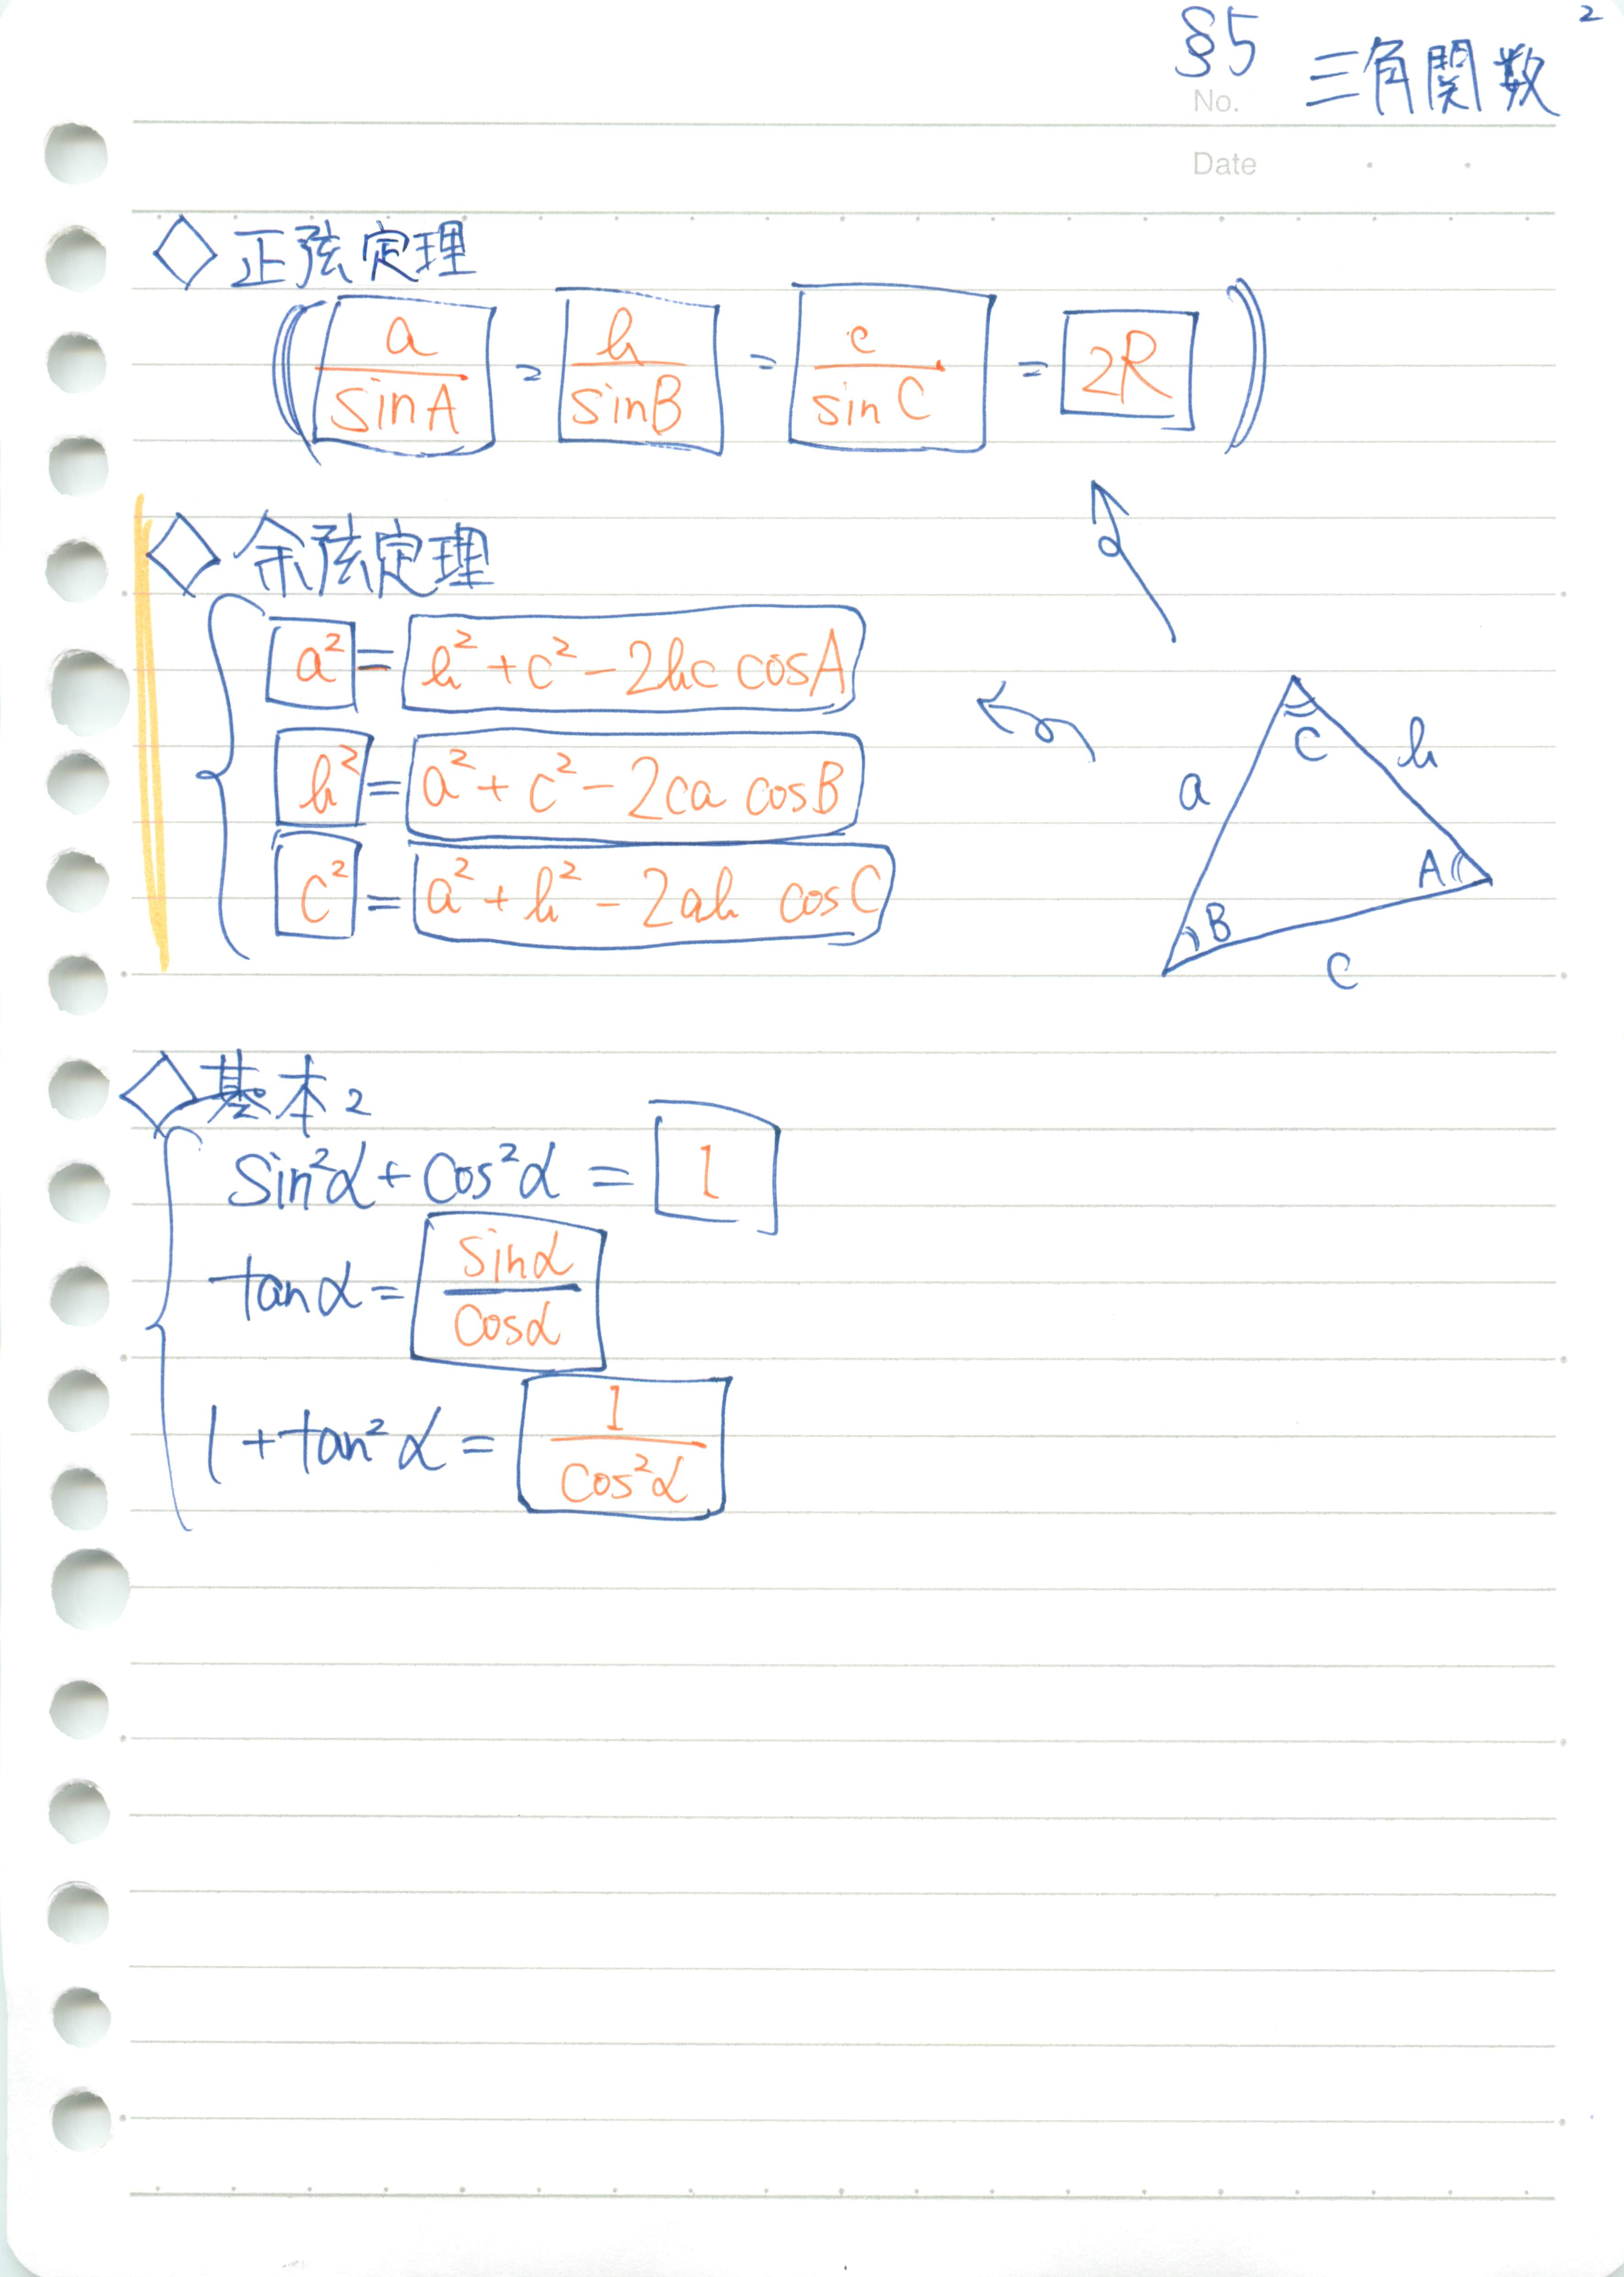 §5 三角関数 2
No.
Date
◇ 正弦定理
a/sinA = b/sinB = c/sinC = 2R
◇ 余弦定理
a² = b² + c² - 2bc cosA
b² = a² + c² - 2ca cosB
c² = a² + b² - 2ab cosC
C
b
a
A
B
c
◇ 基本2
sin²α + cos²α = 1
tanα = sinα/cosα
1 + tan²α = 1/cos²α